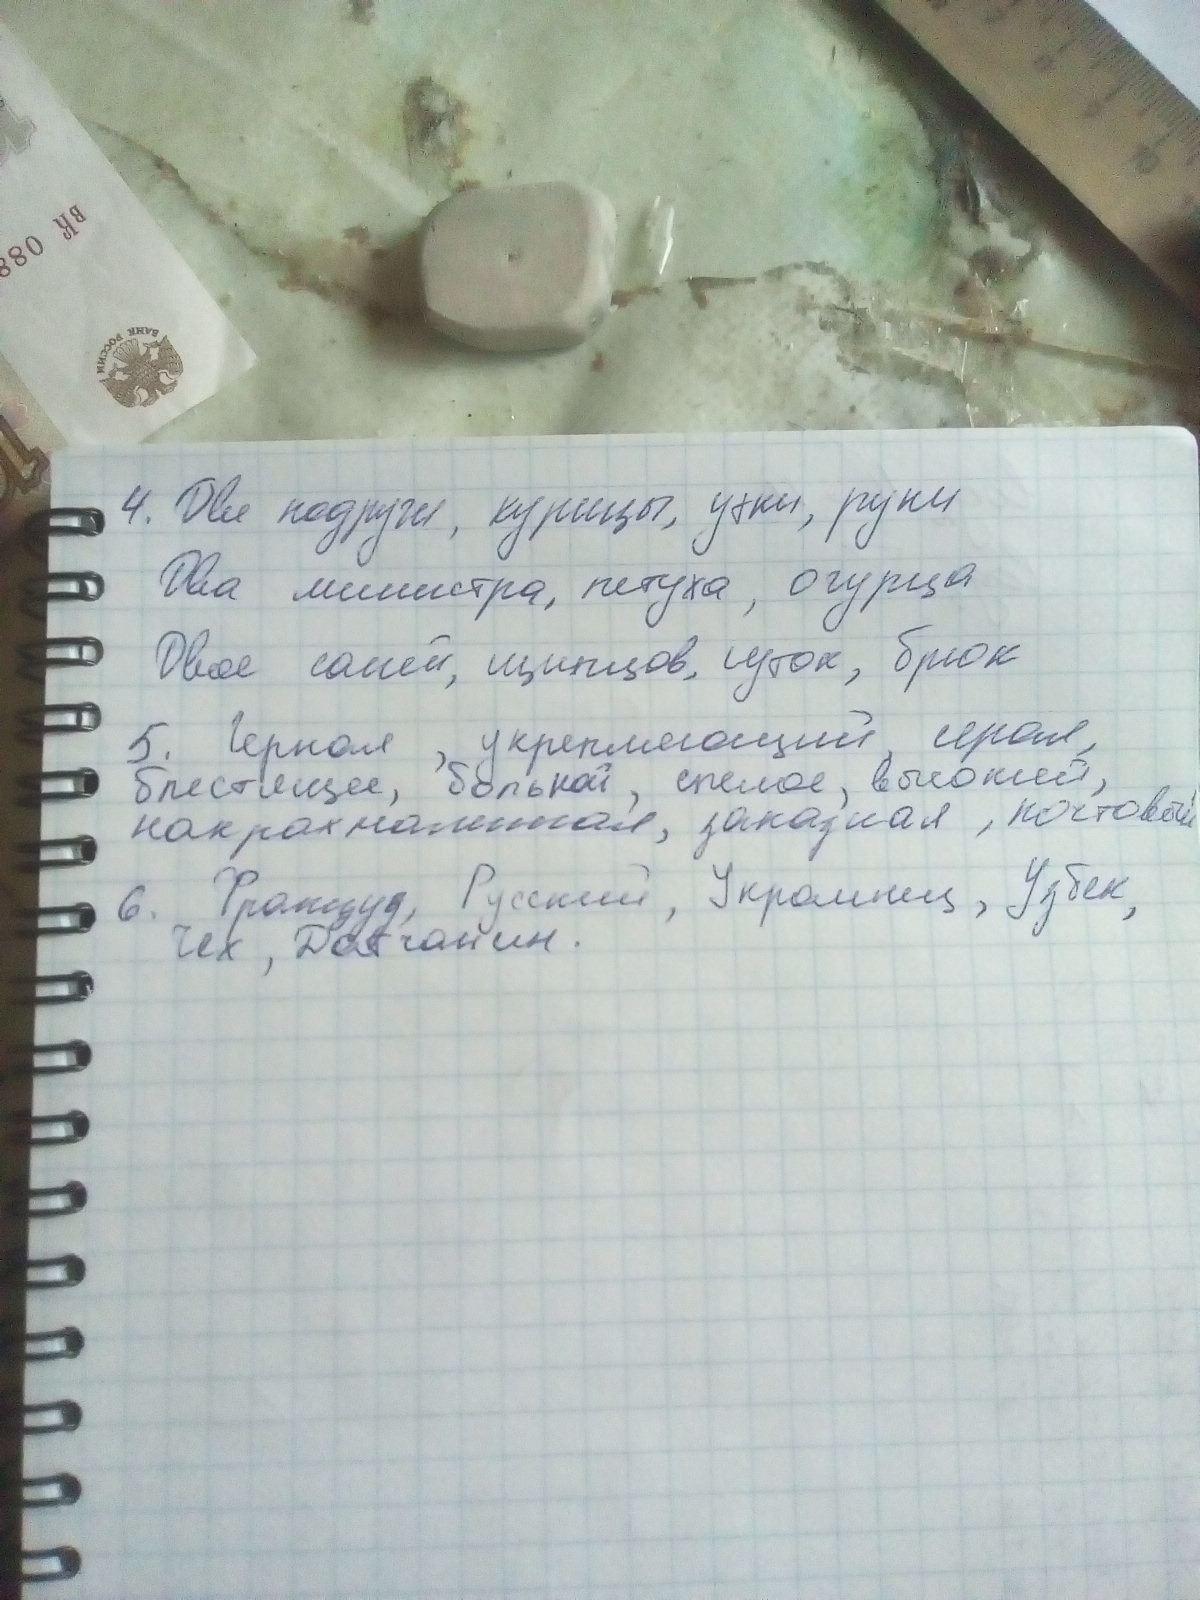 ВК 088
БАНК РОССИИ
4. Две подруги, курицы, утки, руки
Два министра, петуха, огурца
Двое саней, щипцов, суток, брюк
5. Черная, укрепляющий, серая,
блестящее, больной, спелое, высокий,
накрахмаленная, заказная, почтовый
6. Француз, Русский, Украинец, Узбек,
Чех, Датчанин.